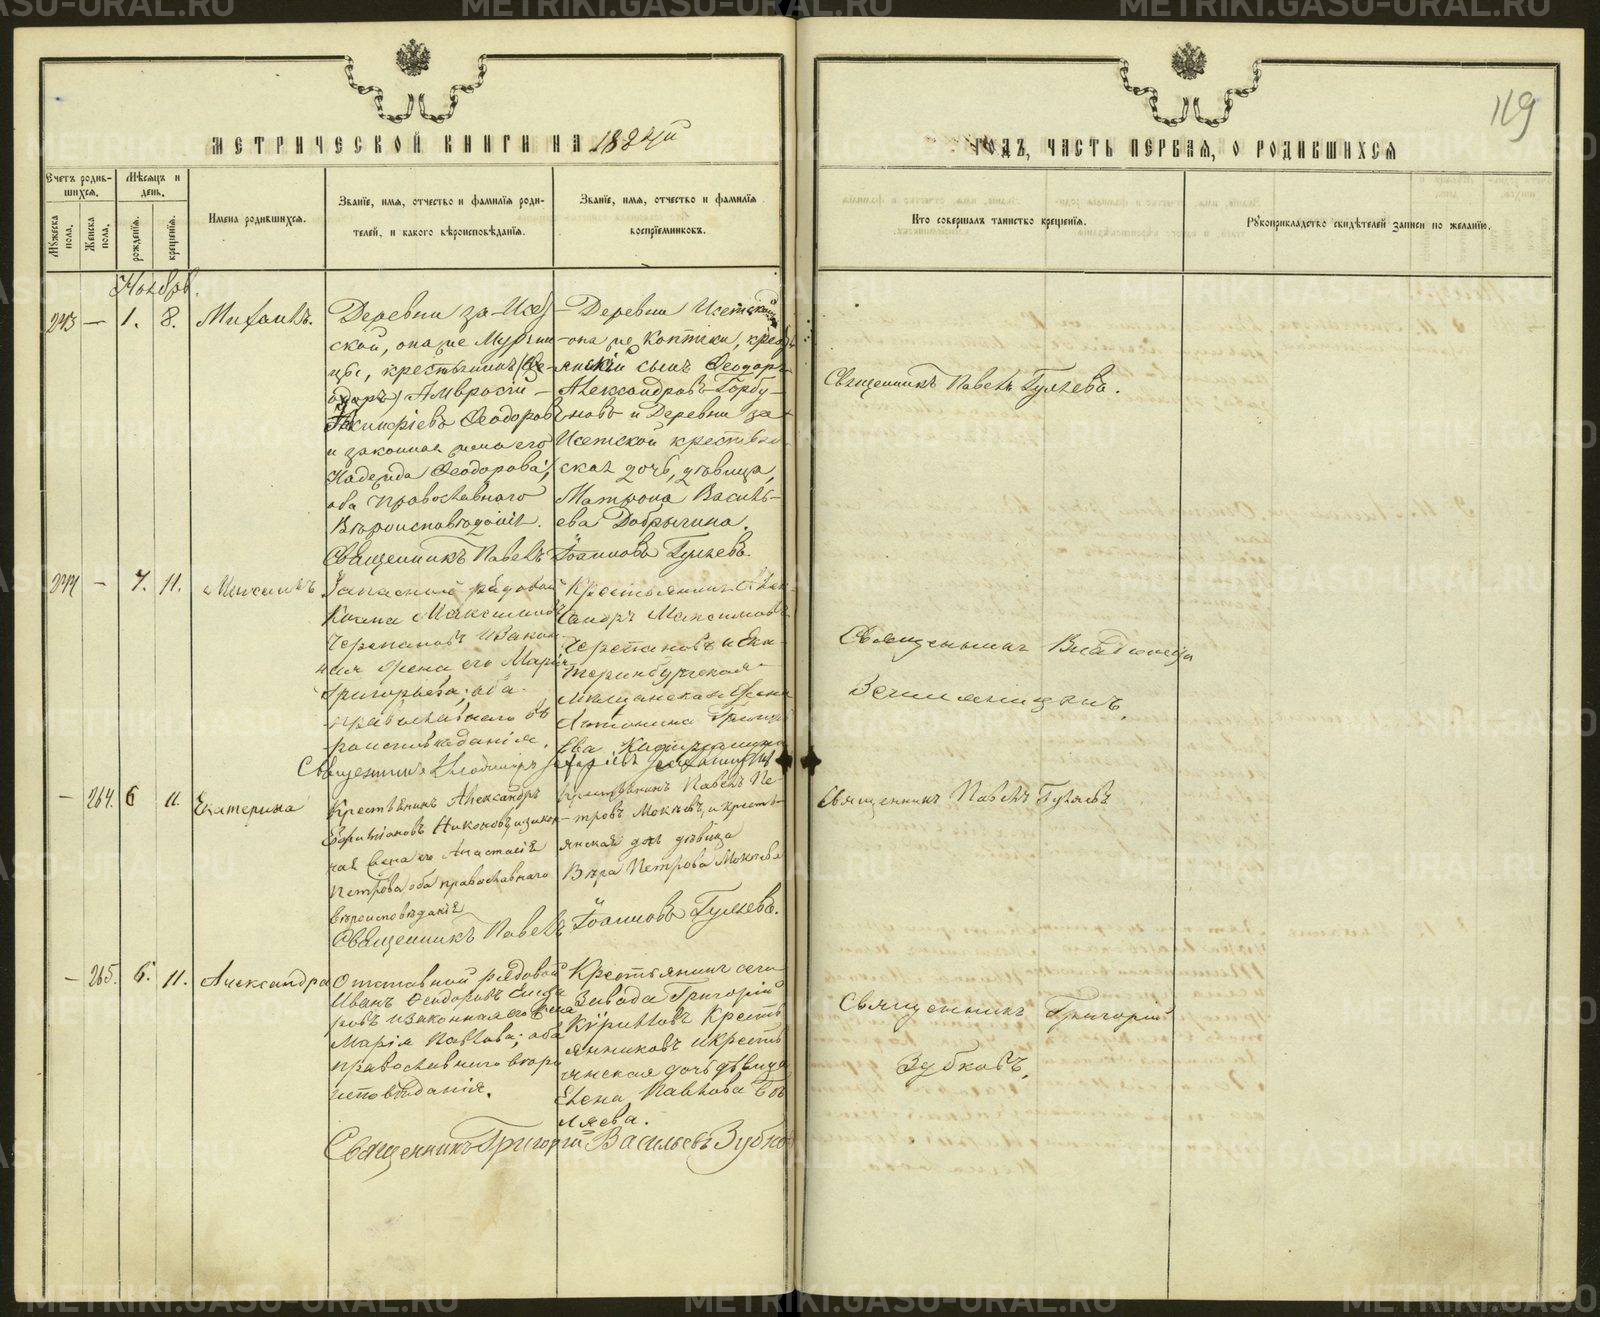 METRIKI.GASO-URAL.RU
119
МЕТРИЧЕСКОЙ КНИГИ НА 1884й
ГОДЪ, ЧАСТЬ ПЕРВАЯ, О РОДИВШИХСЯ
Счетъ родившихся.
Мѣсяцъ и день.
Мужеска пола.
Женска пола.
рожденія.
крещенія.
Имена родившихся.
Званіе, имя, отчество и фамилія роди-
телей, и какого вѣроисповѣданія.
Званіе, имя, отчество и фамилія
воспріемниковъ.
Кто совершалъ таинство крещенія.
Рукоприкладство свидѣтелей записи по желанію.
Ноябрь.
243 — 1. 8. Михаилъ.
Деревни за-Исет
ской, она же Мурзин
цы, крестьянинъ
Амвросій
Ѳеодоровъ
и законная жена его
Надежда Ѳеодорова,
оба Православнаго
Вѣроисповѣданія.
Деревни Исетской
она же Коптяки, кресть
янскій сынъ Ѳеодоръ
Александровъ Горбу-
новъ и Деревни За
Исетской крестьян
ская дочь, дѣвица,
Матрона Василь-
ева Добрынина.
Священникъ Павелъ Іоанновъ Гуляевъ.
Священникъ Павелъ Гуляевъ.
244 — 7. 11. Михаилъ.
Запасный рядовой
Козма Максимовъ
Черепановъ и закон
ная жена его Марія
Григорьева; оба
православнаго вѣ
роисповѣданія.
Крестьянинъ
Максимовъ
Черепановъ и Ека
теринбургская
мѣщанская жена
Антонина Григорь
ева
Священникъ Владиміръ
Священникъ
— 264. 6 11. Екатерина
Крестьянинъ Александръ
Никоновъ и закон
ная жена его Анастасія
Петрова оба православнаго
вѣроисповѣданія
Крестьянинъ Павелъ Пе-
тровъ Мокѣевъ, и кресть
янская дочь дѣвица
Вѣра Петрова Мокѣева
Священникъ Павелъ Іоанновъ Гуляевъ.
Священникъ Павелъ Гуляевъ
— 265. 6. 11. Александра
Отставной рядовой
Иванъ Ѳеодоровъ Елеза
ровъ и законная его жена
Марія Павлова; оба
православнаго вѣро
исповѣданія.
Крестьянинъ сего
Завода Григорій
Кирилловъ Кресть
янниковъ и кресть
янская дочь дѣвица
Елена Павлова Бѣ
ляева.
Священникъ Григорій Васильевъ Зубко
Священникъ Григорій
Зубковъ.